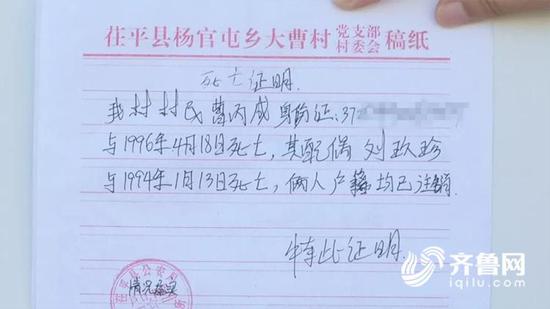 茌平县杨官屯乡大曹村党支部村委会稿纸
死亡证明
我村村民曹丙成身份证:37
与1996年4月18日死亡,其配偶刘玖珍
与1994年1月13日死亡,俩人户籍均已注销.
特此证明.
茌平县公安局
情况属实
齐鲁网
iqilu.com